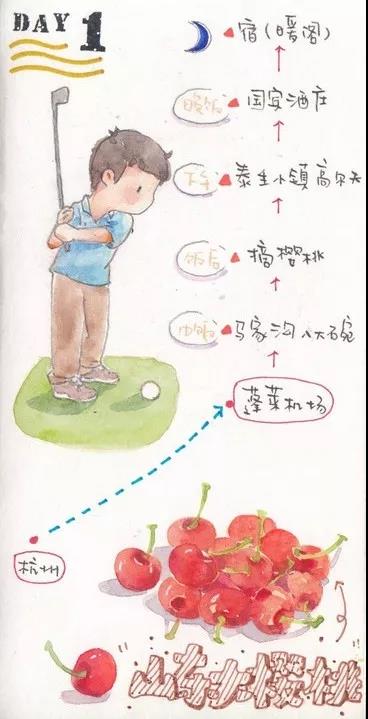 DAY 1
宿(暖阁)
晚饭 国宾酒庄
下午 泰生小镇高尔夫
饭后 摘樱桃
中饭 马家沟八大碗
蓬莱机场
杭州
"山东大樱桃